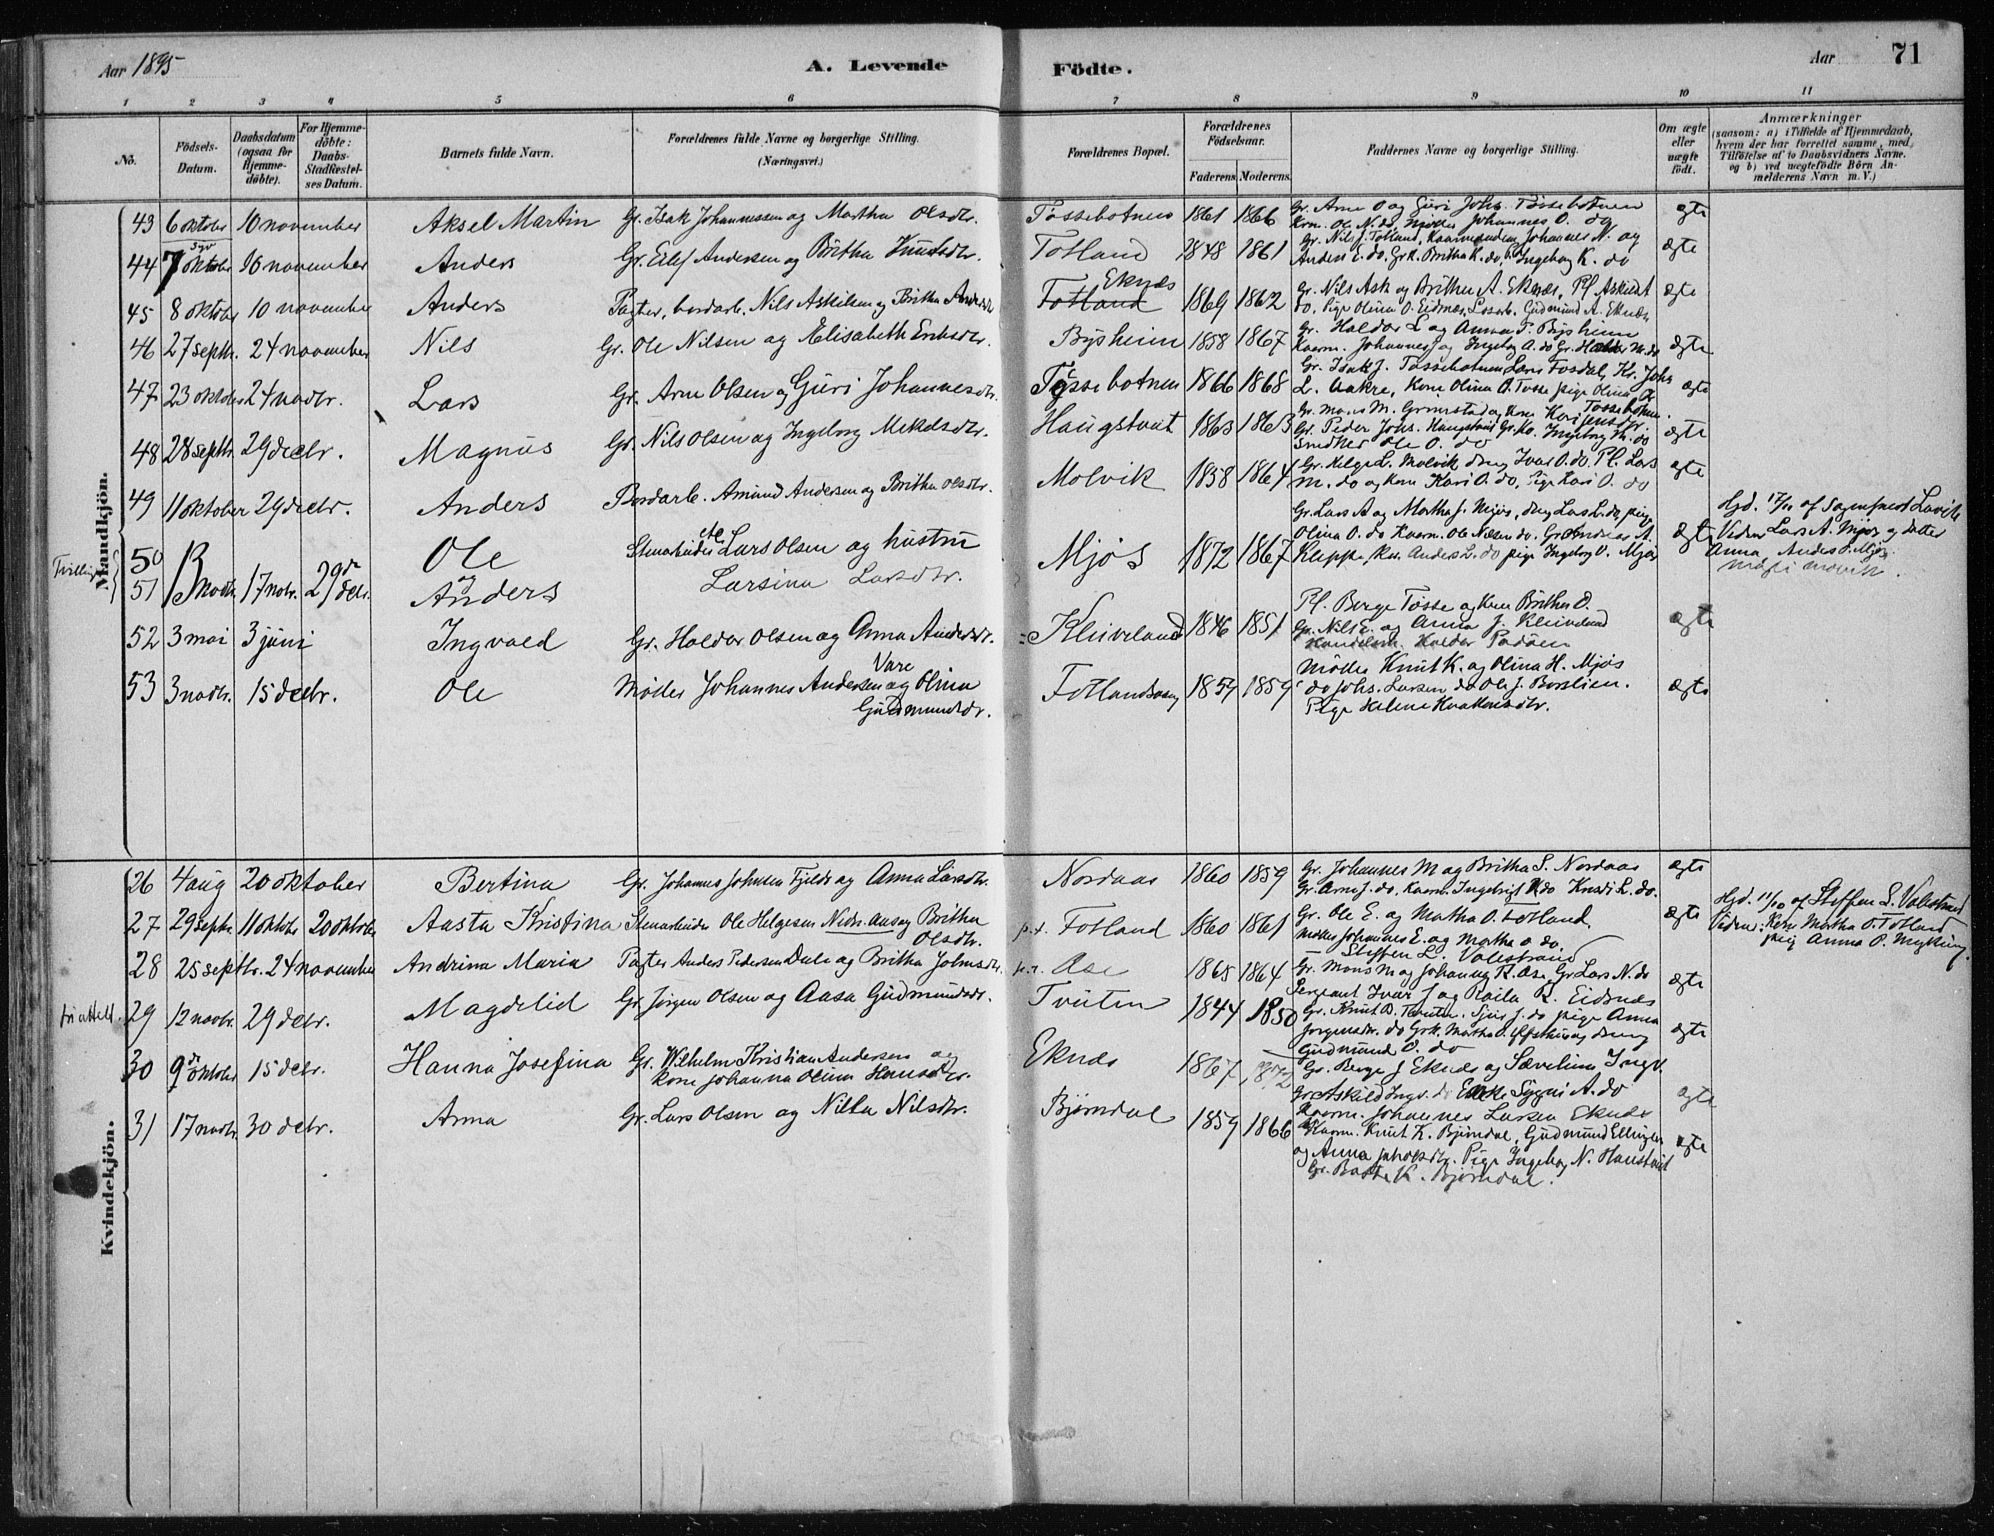 Aar 1895
A. Levende
Födte.
Aar
71
1 2 3 4 5 6 7 8 9 10 11
No.
Födsels-Datum.
Daabsdatum (ogsaa for Hjemme-döbte).
For Hjemme-döbte: Daabs-Stadfæstel-ses Datum.
Barnets fulde Navn.
Forældrenes fulde Navne og borgerlige Stilling. (Næringsvei.)
Forældrenes Bopæl.
Forældrenes Födselsaar.
Faderens. Moderens.
Faddernes Navne og borgerlige Stilling.
Om ægte eller uægte födt.
Anmærkninger (saasom: a) i Tilfælde af Hjemmedaab, hvem der har forrettet samme, med Tilföielse af to Daabsvidners Navne. og b) ved uægtefödte Börn An-melderens Navn m. V.)
Mandkjön.
43 6 oktober 10 november Aksel Martin Gr. Isak Johannessen og Martha Olsdtr. Tössebotnen 1861 1866 Gr. Arne O og Guri Johs. Tössebotnen
Kone Ole N. do Johannes O. do ægte
44 7 syv oktober 10 november Anders Gr. Elef Andersen og Britha Knutsdtr. Totland 1848 1861 Gr. Nils J. Totland, Kaarmanden Johannes N. og
Anders E. do, Grk. Britha K. do, Ingeborg K. do ægte
45 8 oktober 10 november Anders Pagter, bordarb. Nils Askilsen og Britha Andersdtr Totland Eknæs 1869 1862 Gr. Nils Ask og Britha A. Eknæs, Pl. Askild
do, Pige Olina O. Eidnæs, Gudmund A. Eknæs ægte
46 27 septbr. 24 november Nils Gr. Ole Nilsen og Elisabeth Eriksdtr. Bysheim 1858 1867 Gr. Haldor L og Anna P. Bysheim
Kaarm. Johannes J og Ingeborg A. do Gr. Haldor M. do ægte
47 23 oktober 24 novbr. Lars Gr. Arne Olsen og Guri Johannesdtr. Tössebotnen 1866 1868 Gr. Isak J. Tössebotnen Lars Fosdal, Kr. Johs
L. Aakre, Kone Olina O. Tosse pige Olina K
Tossebotnen. ægte
48 28 septbr. 29 decbr. Magnus Gr. Nils Olsen og Ingeborg Mikelsdtr. Haugstvat 1863 1863 Gr. Mons M. Grimstad og Kone Kari Jensdtr.
Gr. Peder Johs. Haugstvat Gr. Ko. Ingeborg M. do
Smedker Ole O. do ægte
49 11 oktober 29 decbr. Anders Bordarb. Amund Andersen og Britha Olsdtr. Molvik 1858 1864 Gr. Helge L. Molvik Ivar O. do. Pl. Lars
M. do og Kone Kari O. do, Pige Kari O. do ægte
Tvillinger
50
51 13 novbr. 17 novbr. 29 decbr. Ole
Anders Stenarbeider Lars Olsen og hustru
Larsina Larsdtr. Mjøs 1872 1867 Gr. Lars A og Martha J. Mjøs, Lars L. do, pige
Olina O. do Kaarm. Ole Nilsen do. Gr. Andreas A.
Kleppe, Anders L. do pige Ingeborg O. Mjøs ægte Hjd. 17/11 af Lavik
Vidner Lars A. Mjøs og datter
Anna, Anders O. Mjøs
52 3 mai 3 juni Ingvald Gr. Haldor Olsen og Anna Andersdtr. Kleiveland 1846 1851 Pl. Berge Tosse og Kone Britha O.
Gr. Nils E. og Anna J. Kleiveland
Handelsm. Haldor Padöen ægte
53 3 novbr. 15 decbr. Ole Møller Johannes Andersen Vare og Olina
Gudmundsdr. Totlandsvaag 1859 1859 Møller Knut K. og Olina H. Mjøs
do Johs. Larsen do Ole J. Borslien.
Pige Helene Haakonsdtr. ægte
Kvindekjön.
26 4 aug 20 oktober Bertina Gr. Johannes Johnsen Fjelde og Anna Larsdtr. Nordaas 1860 1859 Gr. Johannes M og Britha S. Nordaas
Gr. Arne J. do, Kaarm. Ingebrigt K do Knut K. do. ægte
27 29 septbr. 11 oktobr 20 oktober Aasta Kristina Stenarbeider Ole Helgesen Nedr. Aasag Britha
Olsdtr. p.t. Totland 1860 1861 Gr. Ole E. og Martha O. Totland.
møller Johannes E. og Martha O do.
Steffen L. Valestrand ægte Hjd. 11/10 af Steffen L. Valestrand
Vidner: Kone Martha O. Totland
pige Anna P. Myking.
28 25 septbr. 24 november Andrina Maria Pagter Anders Pedersen Dale og Britha Johnsdtr. p.t. Ase 1865 1864 Gr. Mons M og Johanna R. Ase Gr. Lars N. do
Sergeant Ivar J og Raila R. Eidsnes ægte
29 12 novbr. 29 decbr. Magdelid Gr. Jörgen Olsen og Aasa Gudmundsdr. Tveiten 1844 1850 Gr. Knut B. Tveiten. Sjur J. do pige Anna
Jorgensdr. do Grk. Martha O. Øfsthus og
Gudmund O. do ægte
30 9 oktober 15 decbr. Hanna Josefina Gr. Wilhelm Kristian Andersen og
kone Johanna Olina Hansdtr. Eknæs 1867 1872 Gr. Berge J Eknæs og Sævelina Ingv.
Gr. Askild Ingv. do Enke Sygni A. do
Kaarm. Johannes Larsen Eknæs ægte
31 17 novbr 30 decbr. Anna Gr. Lars Olsen og Nilla Nilsdtr. Björndal 1859 1866 Kaarm. Knut K. Björndal, Gudmund Ellingsen
og Anna Jakobsdtr. Pige Ingeborg N. Haustveit
Gr. K. Björndal. ægte